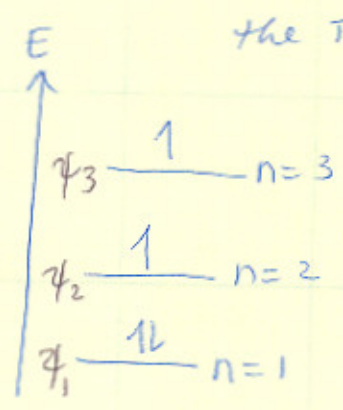 E
the
ψ3 1 n=3
ψ2 1 n=2
ψ1 1L n=1